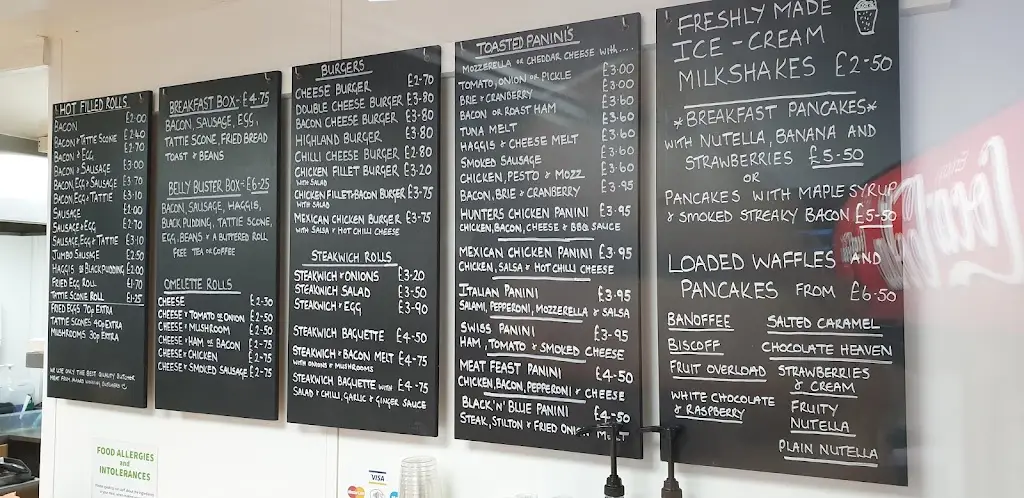 HOT FILLED ROLLS
BACON £2.00
BACON & TATTIE SCONE £2.40
BACON & EGG £2.70
BACON & SAUSAGE £3.00
BACON, EGG & SAUSAGE £3.70
BACON, EGG & TATTIE £3.10
SAUSAGE £2.00
SAUSAGE & EGG £2.70
SAUSAGE, EGG & TATTIE £3.10
JUMBO SAUSAGE £2.50
HAGGIS OR BLACK PUDDING £2.00
FRIED EGG ROLL £1.70
TATTIE SCONE ROLL £1.25
FRIED EGGS 70p EXTRA
TATTIE SCONES 40p EXTRA
MUSHROOMS 30p EXTRA
WE USE ONLY THE BEST QUALITY BUTCHER
MEAT FROM
BREAKFAST BOX - £4.75
BACON, SAUSAGE, EGG,
TATTIE SCONE, FRIED BREAD
TOAST & BEANS
BELLY BUSTER BOX - £6.25
BACON, SAUSAGE, HAGGIS,
BLACK PUDDING, TATTIE SCONE,
EGG, BEANS & A BUTTERED ROLL
FREE TEA OR COFFEE
OMELETTE ROLLS
CHEESE £2-30
CHEESE & TOMATO OR ONION £2-50
CHEESE & MUSHROOM £2-50
CHEESE & HAM OR BACON £2-75
CHEESE & CHICKEN £2-75
CHEESE & SMOKED SAUSAGE £2-75
BURGERS
CHEESE BURGER £2-70
DOUBLE CHEESE BURGER £3-80
BACON CHEESE BURGER £3-80
HIGHLAND BURGER £3-80
CHILLI CHEESE BURGER £2-80
CHICKEN FILLET BURGER £3-20
WITH SALAD
CHICKEN FILLET & BACON BURGER £3-75
WITH SALAD
MEXICAN CHICKEN BURGER £3-75
WITH SALSA & HOT CHILLI CHEESE
STEAKWICH ROLLS
STEAKWICH & ONIONS £3-20
STEAKWICH SALAD £3-50
STEAKWICH & EGG £3-90
STEAKWICH BAGUETTE £4-50
STEAKWICH & BACON MELT £4-75
WITH ONIONS & MUSHROOMS
STEAKWICH BAGUETTE WITH £4-75
SALAD & CHILLI, GARLIC & GINGER SAUCE
TOASTED PANINI'S
MOZZERELLA OR CHEDDAR CHEESE WITH....
TOMATO, ONION OR PICKLE £3.00
BRIE & CRANBERRY £3.00
BACON OR ROAST HAM £3.60
TUNA MELT £3.60
HAGGIS & CHEESE MELT £3.60
SMOKED SAUSAGE £3.60
CHICKEN, PESTO & MOZZ £3.60
BACON, BRIE & CRANBERRY £3.95
HUNTERS CHICKEN PANINI £3.95
CHICKEN, BACON, CHEESE & BBQ SAUCE
MEXICAN CHICKEN PANINI £3.95
CHICKEN, SALSA & HOT CHILLI CHEESE
ITALIAN PANINI £3.95
SALAMI, PEPPERONI, MOZZERELLA & SALSA
SWISS PANINI £3-95
HAM, TOMATO & SMOKED CHEESE
MEAT FEAST PANINI £4-50
CHICKEN, BACON, PEPPERONI & CHEESE
BLACK 'N' BLUE PANINI £4-50
STEAK, STILTON & FRIED ONION MELT
FRESHLY MADE
ICE-CREAM
MILKSHAKES £2-50
*BREAKFAST PANCAKES*
WITH NUTELLA, BANANA AND
STRAWBERRIES £5-50
OR
PANCAKES WITH MAPLE SYRUP
& SMOKED STREAKY BACON £5-50
LOADED WAFFLES AND
PANCAKES FROM £6-50
BANOFFEE
BISCOFF
FRUIT OVERLOAD
WHITE CHOCOLATE
& RASPBERRY
SALTED CARAMEL
CHOCOLATE HEAVEN
STRAWBERRIES
& CREAM
FRUITY
NUTELLA
PLAIN NUTELLA
FOOD ALLERGIES
and
INTOLERANCES
VISA